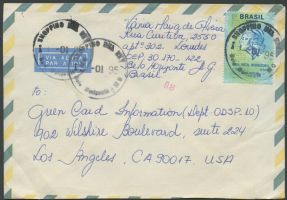 BRASIL
Rua Curitiba, 2550
aptº 302. Lourdes
CEP 30.170-122
Belo Horizonte
Brasil
VIA AÉREA
PAR AVION
To:
Green Card Information (Dept. ODSP-10)
1902 Wilshire Boulevard, suite 224
Los Angeles, CA 90017. USA